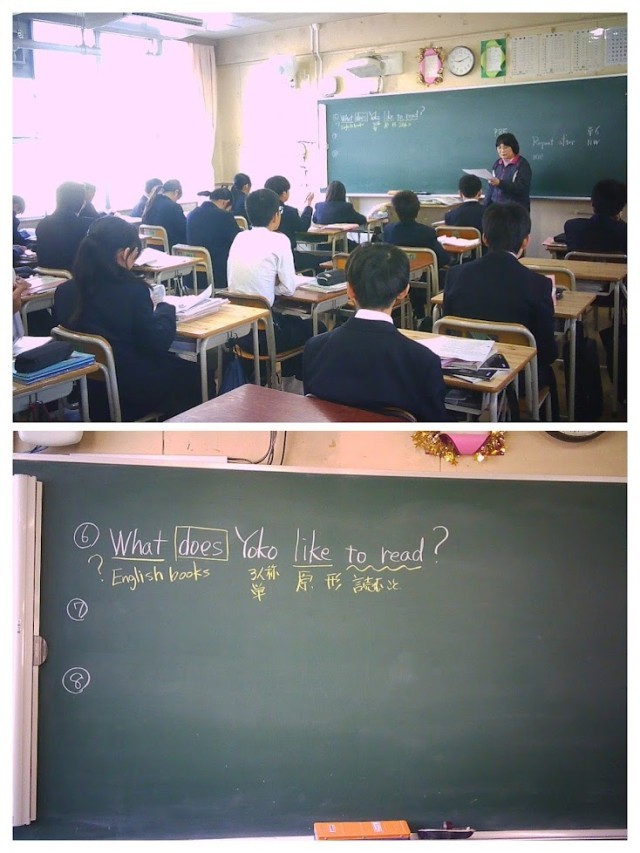 What does Yoko to read?
English books
Repeat after
me
⑥ What does Yoko like to read?
? English books 3人称 原形 読むこと
単
⑦
⑧